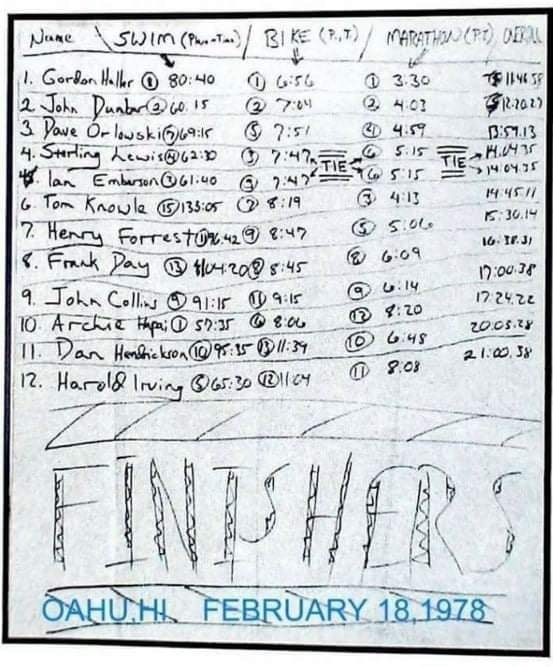 Name \ SWIM (Place-Time) / BIKE (P., T.) / MARATHON (P.T.) OVERALL
1. Gordon Haller ⑧ 80:40 ① 6:56 ① 3:30 11:46.58
2. John Dunbar ② 60:15 ② 7:04 ② 4:03 12:20.27
3. Dave Orlowski ⑦ 69:15 ⑤ 7:51 ④ 4:59 13:59.13
4. Sterling Lewis ④ 62:30 ③ 7:47 TIE ⑥ 5:15 TIE 14:04.35
5. Ian Emberson ③ 61:40 ③ 7:47 ⑥ 5:15 14:04.35
6. Tom Knowle ⑮ 133:05 ⑦ 8:19 ③ 4:13 14:45.11
7. Henry Forrest ⑪ 96.42 ⑨ 8:47 ⑤ 5:06 15:30.14
8. Frank Day ⑬ 104:20 ⑧ 8:45 ⑧ 6:09 16:38.31
9. John Collins ⑨ 91:15 ⑪ 9:15 ⑨ 6:14 17:00.38
10. Archie Hapai ① 57:35 ⑥ 8:06 ⑬ 8:20 17:24.22
11. Dan Hendrickson ⑩ 95:35 ⑬ 11:39 ⑩ 6:48 20:03.28
12. Harold Irving ⑤ 65:30 ⑫ 11:04 ⑪ 8:08 21:00.38
FINISHERS
OAHU,HI FEBRUARY 18,1978